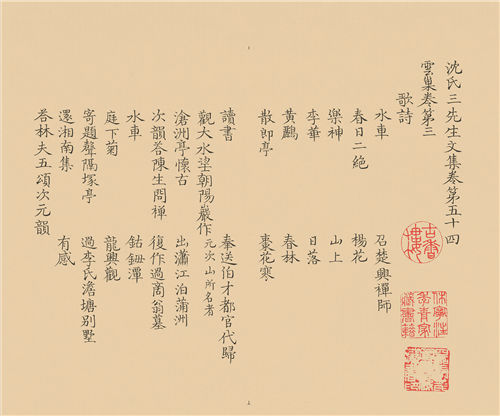 沈氏三先生文集卷第五十四
雲巢卷第三
歌詩
水車 召楚興禪師
春日二絶 楊花
樂神 山上
李華 日落
黄鸝 春林
散郎亭 棗花寒
讀書 奉送伯才都官代歸
觀大水望朝陽巖作元次山所名者
滄洲亭懷古 出瀟江泊蒲洲
次韻荅陳生問禅 復作過商翁墓
水車 鈷鉧潭
庭下菊 龍興觀
寄題聲隔塚亭 過李氏澹塘别墅
還湘南集 有感
荅林夫五頌次元韻
古香樓
休寧汪季青家藏書籍